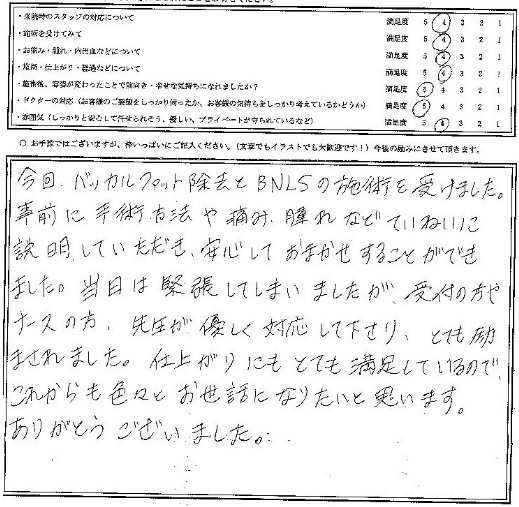 ・来院時のスタッフの対応について 満足度 5 4 3 2 1
・施術を受けてみて 満足度 5 4 3 2 1
・お痛み・腫れ・内出血などについて 満足度 5 4 3 2 1
・効果・仕上がり・経過などについて 満足度 5 4 3 2 1
・施術後、容姿が変わったことで前向き・幸せな気持ちになれましたか? 満足度 5 4 3 2 1
・ドクターの対応(お客様のご要望をしっかり伺ったか、お客様の気持ちをしっかり考えているかどうか) 満足度 5 4 3 2 1
・雰囲気(しっかりと安心して任せられそう、優しい、プライベートが守られているなど) 満足度 5 4 3 2 1
○ お手数ではございますが、枠いっぱいにご記入ください。(文章でもイラストでも大歓迎です!)今後の励みにさせて頂きます。
今回、バッカルファット除去とBNLSの施術を受けました。
事前に手術方法や痛み、腫れなどていねいに
説明していただき、安心しておまかせすることができ
ました。当日は緊張してしまいましたが、受付の方や
ナースの方、先生が優しく対応して下さり、とても励
まされました。仕上がりにもとても満足しているので、
これからも色々とお世話になりたいと思います。
ありがとうございました。